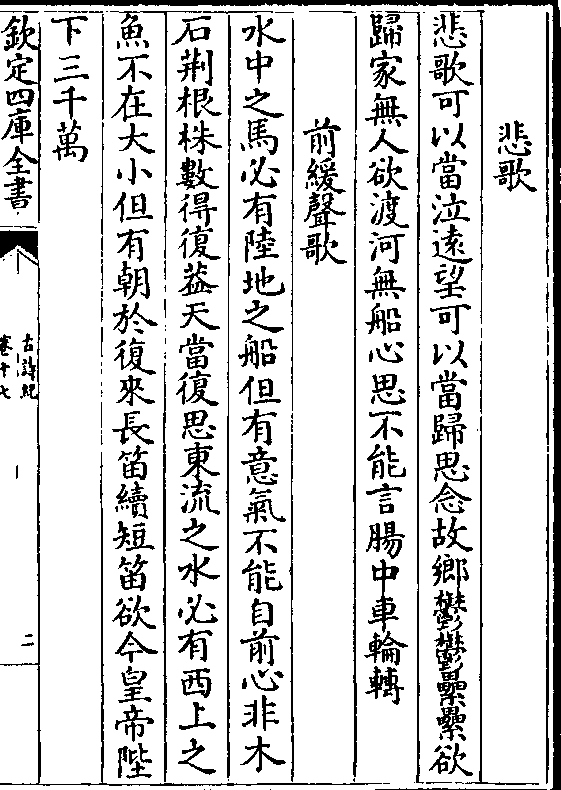 悲歌
悲歌可以當泣遠望可以當歸思念故鄉鬱鬱纍纍欲
歸家無人欲渡河無船心思不能言腸中車輪轉
前緩聲歌
水中之馬必有陸地之船但有意氣不能自前心非木
石荆根株數得復葢天當復思東流之水必有西上之
魚不在大小但有朝於復來長笛續短笛欲今皇帝陛
下三千萬
欽定四庫全書
古詩紀
卷十七
二